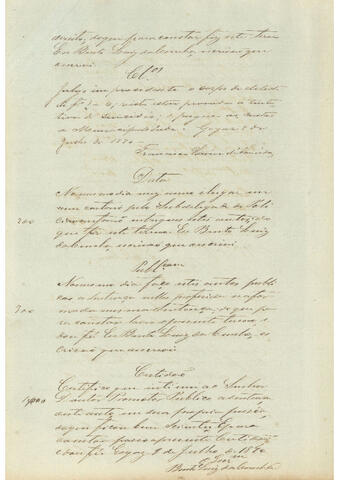 direito, do que para constar fiz este termo
Eu Bento Luiz da Cunha, escrivão que
escrevi
Cl.os
Julgo improcedente o corpo de delicto
de f a 6, visto estar provado a tenta
tiva de suicidio; e pague as custas
a Municipalidade. Goyaz 8 de
Julho de 1870
Francisco
Data
No mesmo dia mez anno e lugar em
meu cartorio pelo Subdelegado de Poli
cia me forão entregues estes autos, do
que fiz este termo. Eu Bento Luiz
da Cunha escrivão que escrevi
200
Publ.cam
No mesmo dia faço estes autos publi
cos a Sentença nelles proferida na for
ma da mesma Sentença, do que pa
ra constar lavro o presente termo, e
dou fé. Eu Bento Luiz da Cunha, es
crivão que escrevi
300
Certidão
Certifico que intimei ao Senhor
Doutor Promotor Publico a sentença
retro em sua propria pessoa,
do que ficou bem sciente. E para
constar passo a presente Certidão
e dou fé. Goyaz 9 de Julho de 1870
1000
Bento Luiz da Cunha